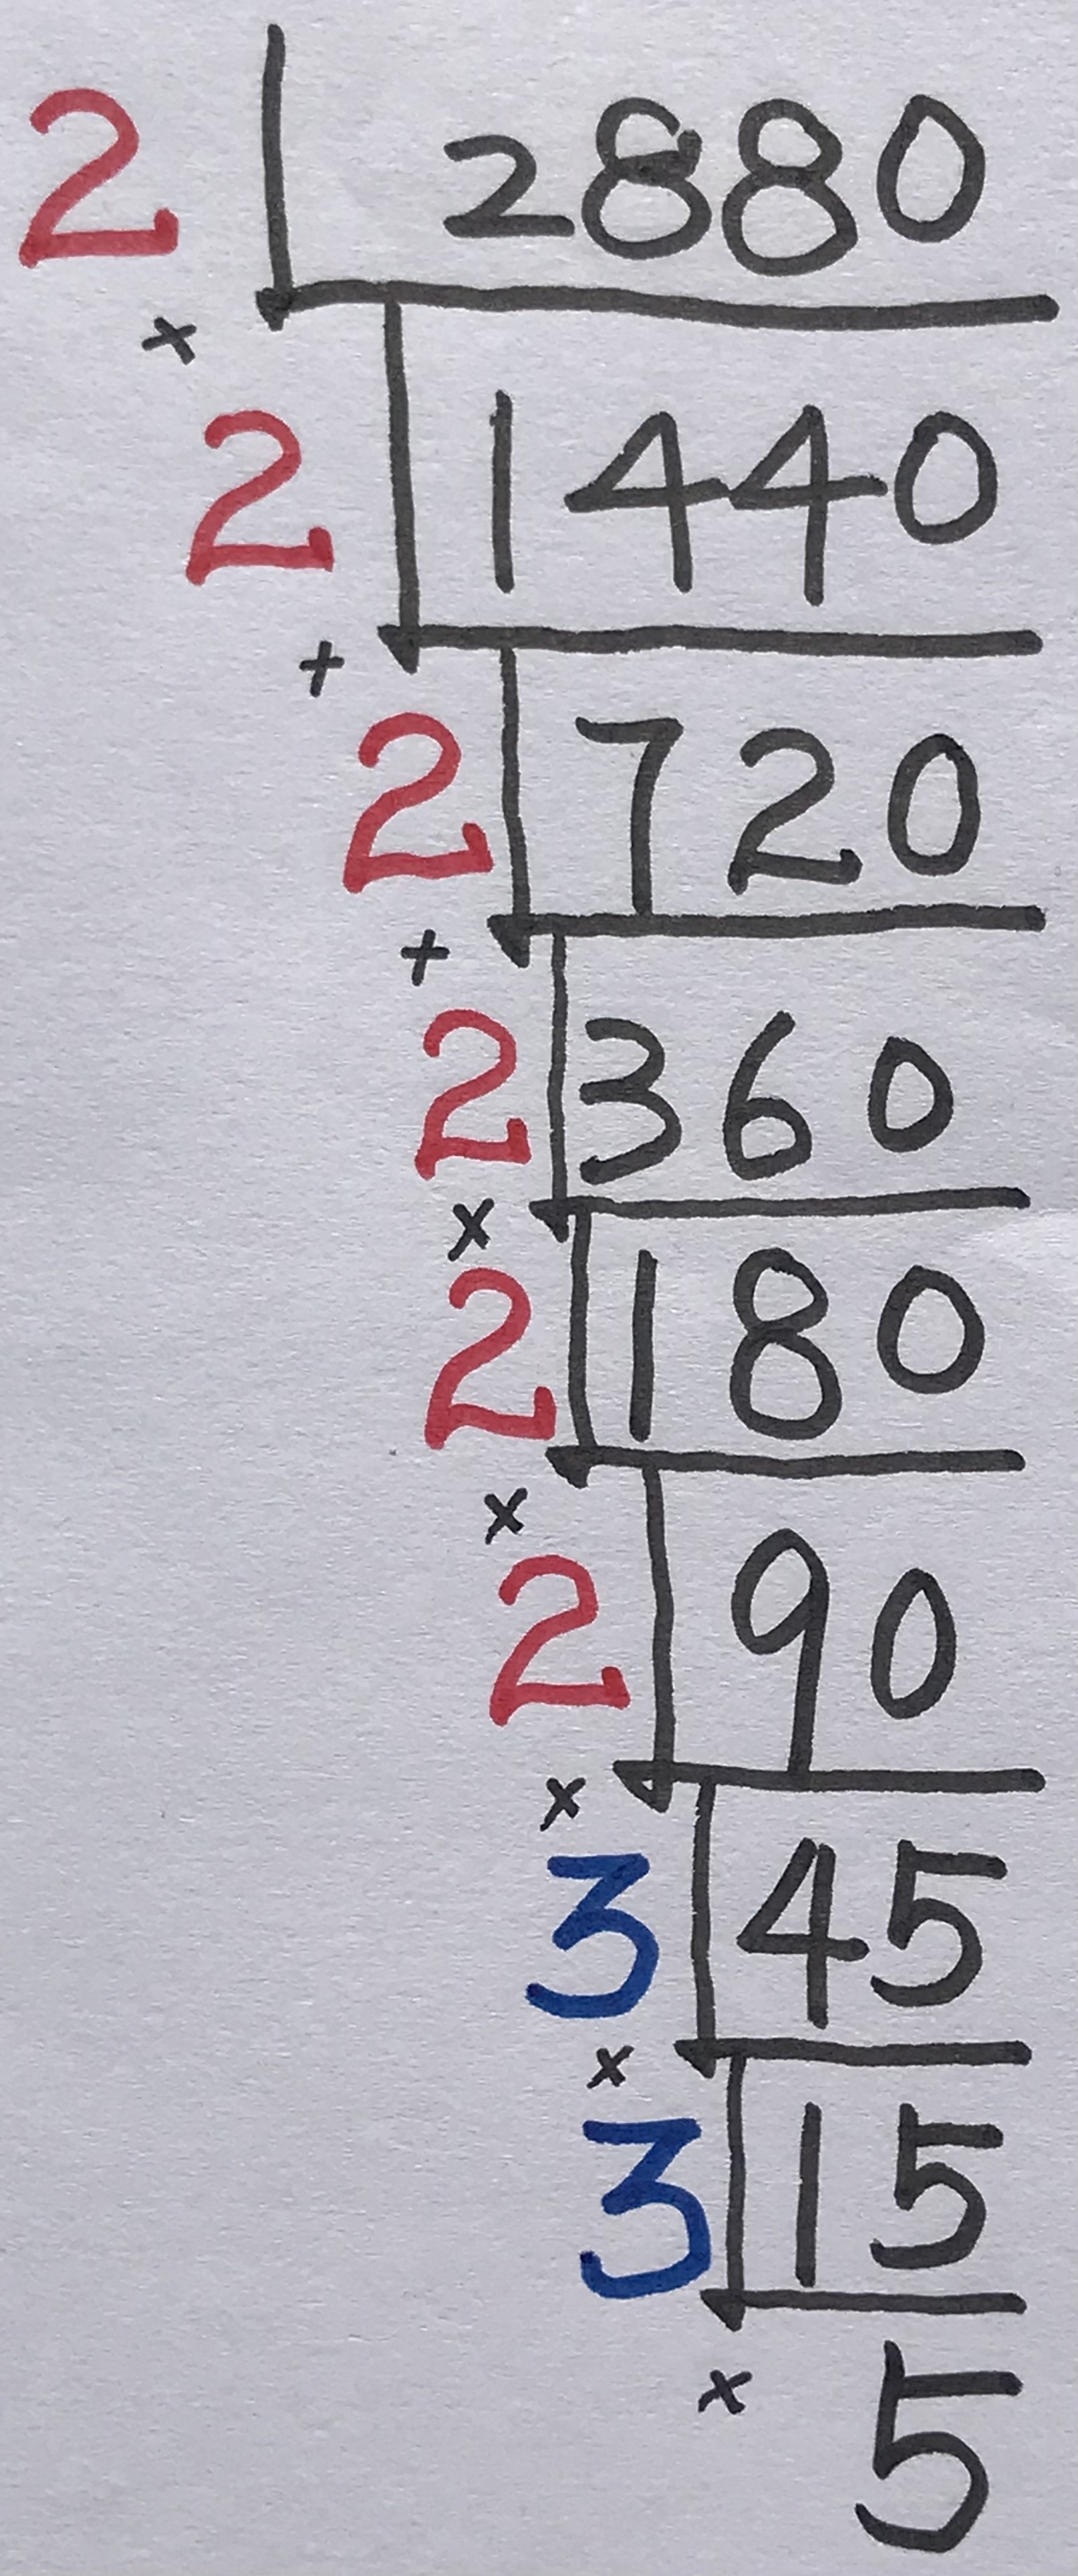 2 2880
×
2 1440
+
2 720
+
2 360
×
2 180
×
2 90
×
3 45
×
3 15
× 5